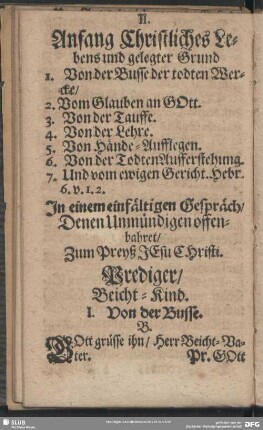 II.
Anfang Christliches Le-
bens und gelegter Grund
1. Von der Busse der todten Wer-
cke/
2. Vom Glauben an GOtt.
3. Von der Tauffe.
4. Von der Lehre.
5. Von Hände-Aufflegen.
6. Von der Todten Aufferstehung.
7. Und vom ewigen Gericht. Hebr.
6. v. 1. 2.
In einem einfältigen Gespräch/
Denen Unmündigen offen-
bahret/
Zum Preyß JEsu CHristi.
Prediger/
Beicht-Kind.
I. Von der Busse.
B.
GOtt grüsse ihn/ Herr Beicht-Va-
ter. Pr. GOtt
SLUB
DFG